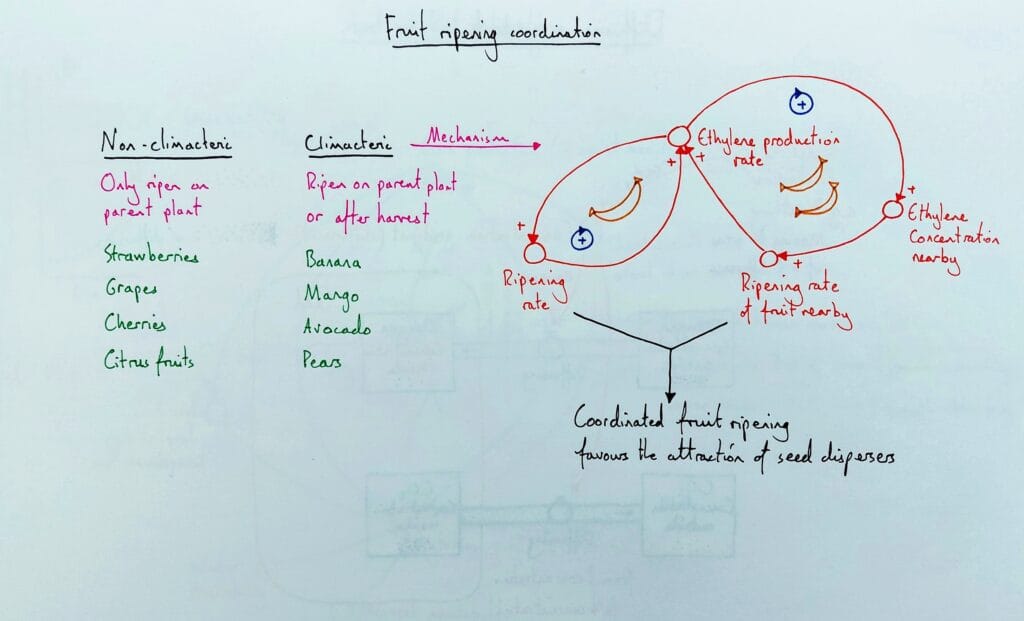 Fruit ripening coordination
Non-climacteric
Only ripen on
parent plant
Strawberries
Grapes
Cherries
Citrus fruits
Climacteric
Ripen on parent plant
or after harvest
Banana
Mango
Avocado
Pears
Mechanism
+
Ethylene production
rate
+
+
+
Ethylene
Concentration
nearby
+
Ripening rate
of fruit nearby
+
+
Ripening
rate
Coordinated fruit ripening
favours the attraction of seed dispersers